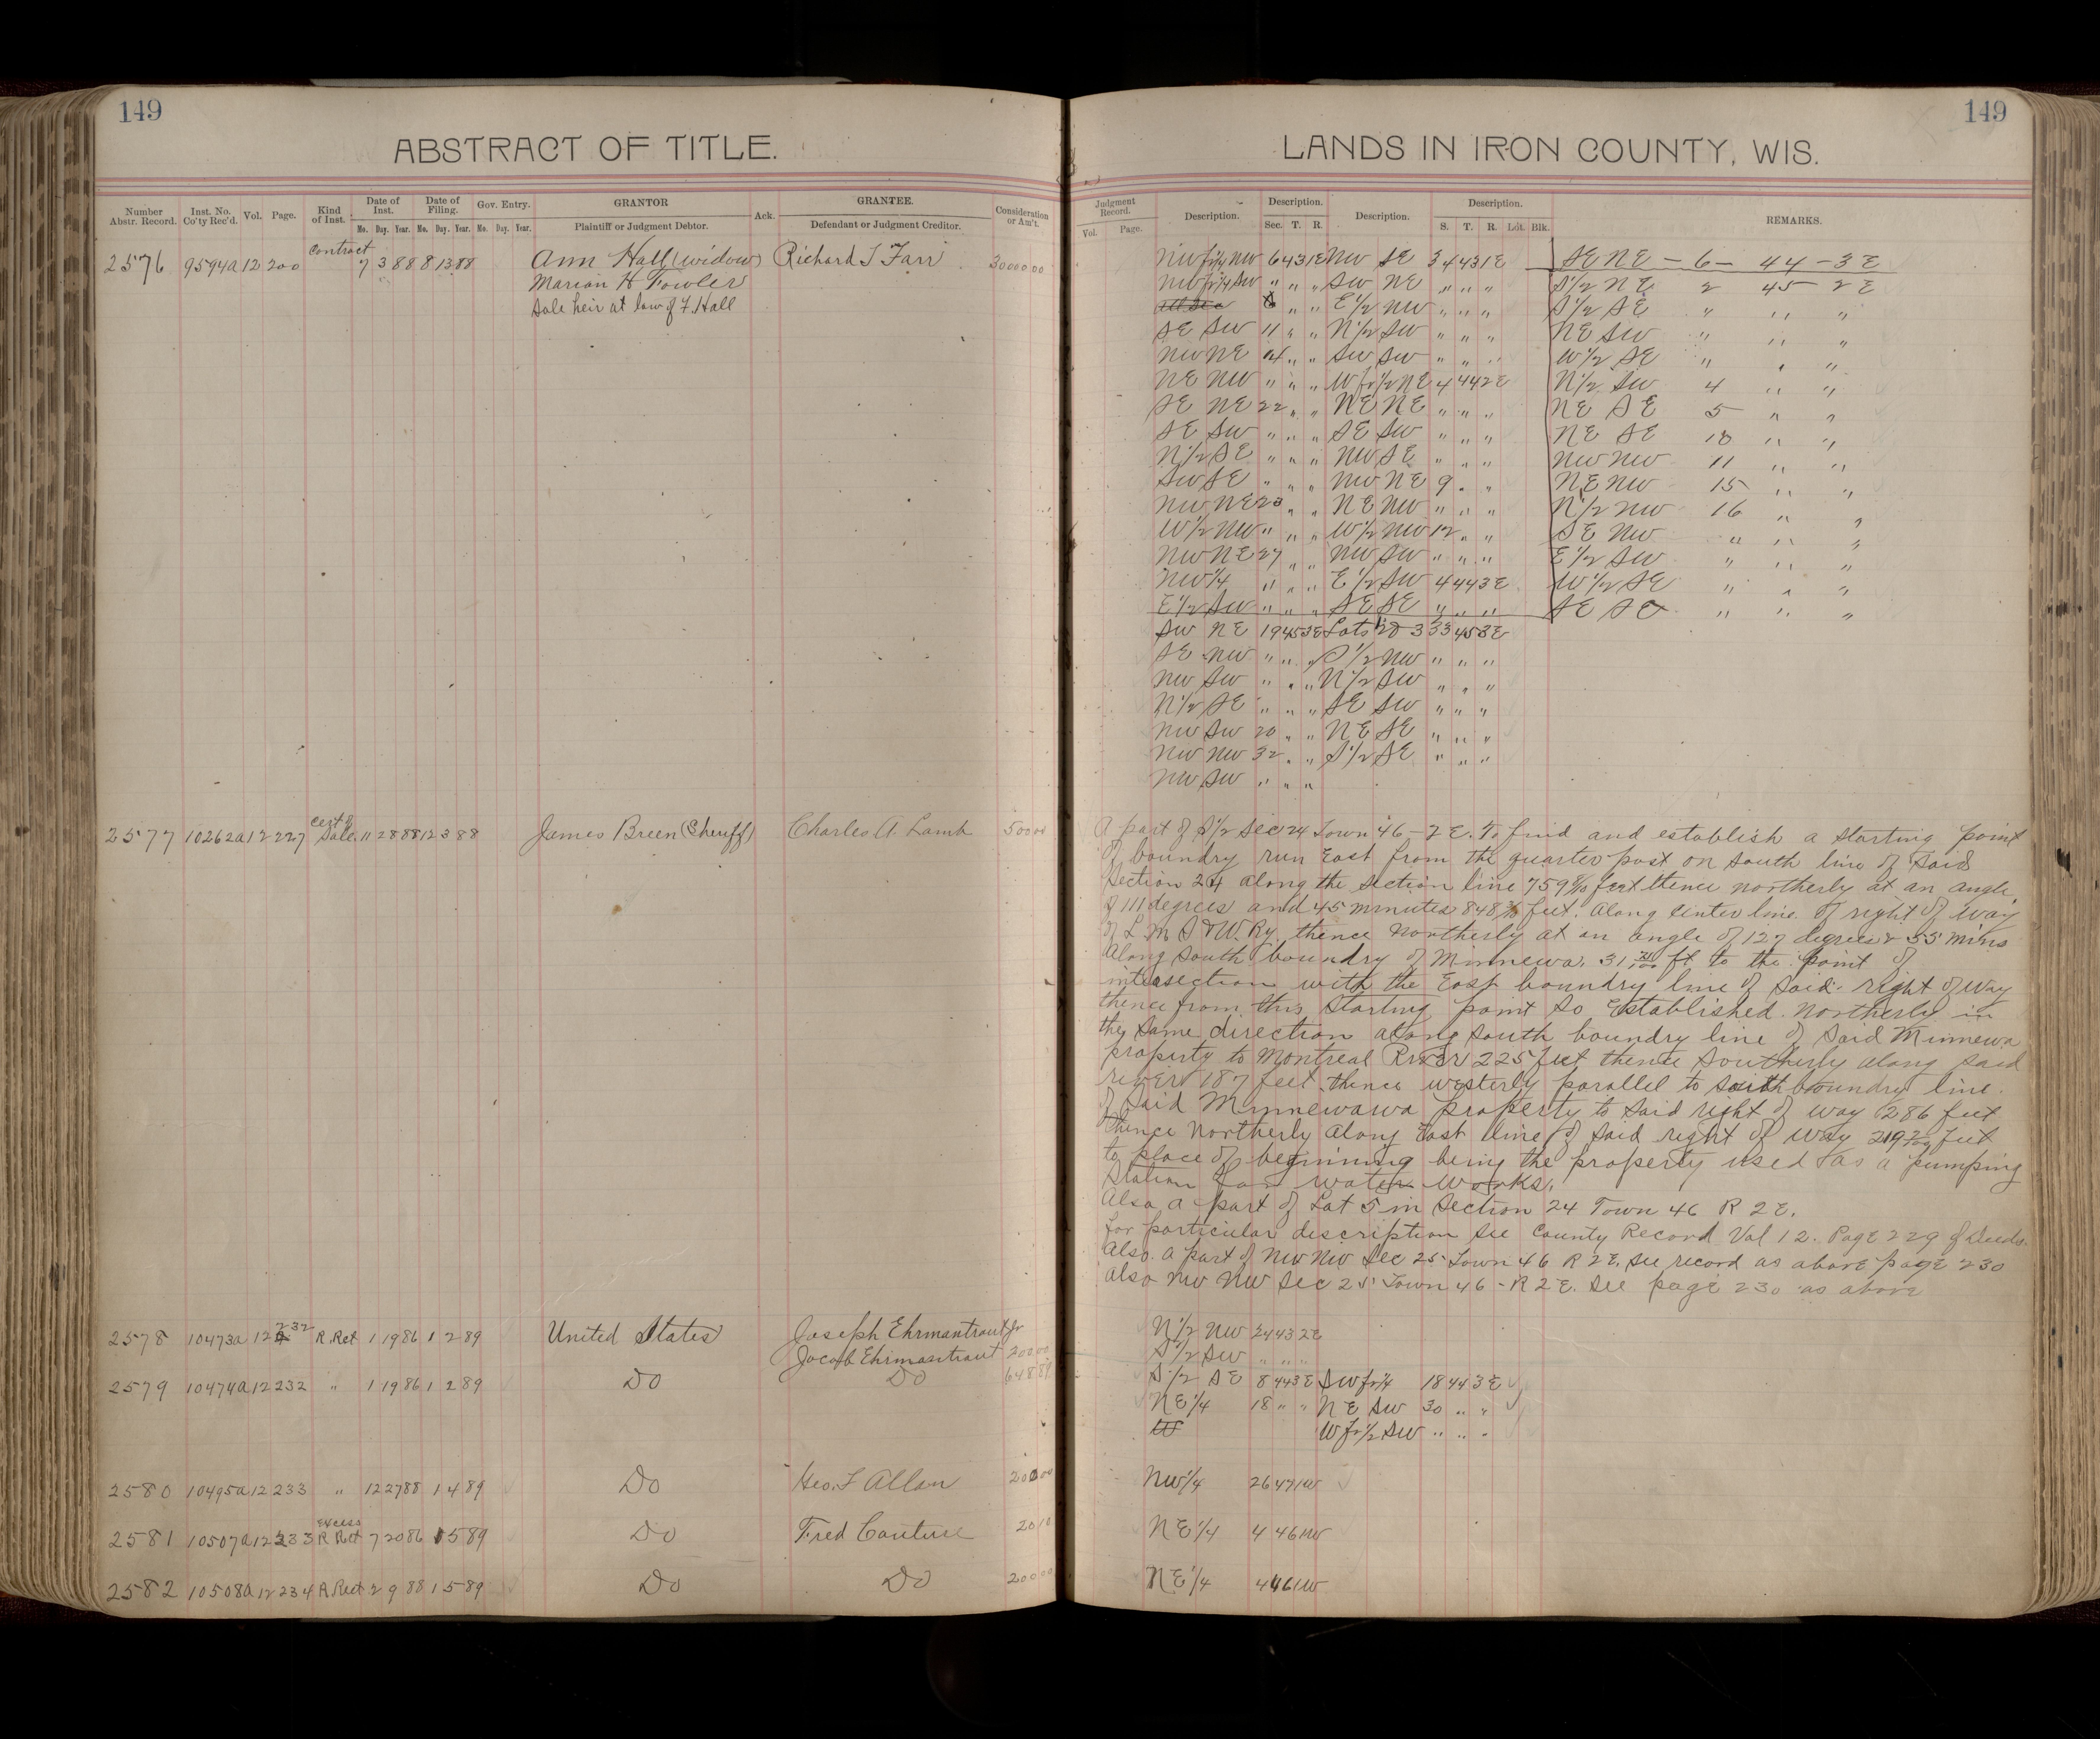 149
149
ABSTRACT OF TITLE.
LANDS IN IRON COUNTY, WIS.
Number Abstr. Record. Inst. No. Co'ty Rec'd. Vol. Page. Kind of Inst. Date of Inst. Date of Filing. Gov. Entry. GRANTOR Ack. GRANTEE. Consideration or Am't.
Mo. Day. Year. Mo. Day. Year. Mo. Day. Year. Plaintiff or Judgment Debtor. Defendant or Judgment Creditor.
Judgment Record. Description. Description. Description. Description. REMARKS.
Vol. Page. Sec. T. R. S. T. R. Lot. Blk.
2576 9594a 12 200 Contract 7 3 88 8 13 88 Ann Hall (widow) Richard T Farr 30000 00
Marion H Fowler
Sole heir at law of F. Hall
NW fr 1/4 NW 6 43 1E NW SE 3 44 31E SE NE - 6 - 44 - 3 E
NW fr 1/4 SW " " " SW NE " " " S 1/2 NE 2 45 2 E
" " E 1/2 NW " " " S 1/2 SE " " "
SE SW 11 " " N 1/2 SW " " " NE SW " " "
NW NE 14 " " SW SW " " " W 1/2 SE " " "
NE NW " " " W fr 1/2 NE 4 44 2E N 1/2 SW 4 " "
SE NE 22 " " NE NE " " " NE SE 5 " "
SE SW " " " SE SW " " " NE SE 10 " "
N 1/2 SE " " " NW SE " " " NW NW 11 " "
SW SE " " " NW NE 9 " " NE NW 15 " "
NW NE 23 " " NE NW " " " N 1/2 NW 16 " "
W 1/2 NW " " " W 1/2 NW 12 " " SE NW " " "
NW NE 27 " " NW SW " " " E 1/2 SW " " "
NW 1/4 " " " E 1/2 SW 4 44 3E W 1/2 SE " " "
E 1/2 SW " " " SE SE " " " SE SE " " "
SW NE 19 45 3E Lots 2 & 3 33 45 3E
SE NW " " " S 1/2 NW " " "
NW SW " " " N 1/2 SW " " "
N 1/2 SE " " " SE SW " " "
NW SW 20 " " NE SE " " "
NW NW 32 " " S 1/2 SE " " "
NW SW " " "
2577 10262a 12 227 Cert of Sale. 11 28 88 12 3 88 James Breen (Sheriff) Charles A Lamb 500 00
A part of S 1/2 Sec 24 Town 46 - 2 E. To find and establish a starting point
of boundry run East from the quarter post on south line of Said
Section 24 along the section line 759 8/10 feet thence northerly at an angle
of 111 degrees and 45 minutes 848 feet. Along center line of right of way
of L. M. S & W. Ry. thence Northerly at an angle of 127 degrees & 55 mins
Along South boundry of Minnewa. 31 ft to the point of
intersection with the East boundry line of said right of way
thence from this Starting point so Established. Northerly in
the same direction along south boundry line of Said Minnewa
property to Montreal River 225 feet thence Southerly along said
river 187 feet thence westerly parallel to south boundry line.
of Said Minnewawa property to Said right of way 286 feet
Thence Northerly along East line of said right of way 219 feet
to place of beginning being the property used as a pumping
Station for water works.
Also a part of Lot 5 in Section 24 Town 46 R 2 E.
For particular description see County Record Vol 12. Page 229 of Deeds.
Also. a part of NW NW Sec 25 Town 46 R 2 E. See record as above page 230
Also NW NW Sec 25 Town 46 - R 2 E. See page 230 as above
2578 10473a 12 232 R. Rct 1 19 86 1 2 89 United States Joseph Ehrmantraut Jr N 1/2 NW 24 43 2E
Jacob Ehrmantraut 200 00 S 1/2 SW " " "
2579 10474a 12 232 " 1 19 86 1 2 89 Do Do 648 89 S 1/2 SE 8 44 3 E SW fr 1/4 18 44 3 E
NE 1/4 18 " " NE SW 30 " "
W fr 1/2 SW " " "
2580 10495a 12 233 " 12 27 88 1 4 89 Do Geo. F Allan 200 00 NW 1/4 26 47 1W
2581 10507a 12 233 Excess R Rct 7 20 86 1 5 89 Do Fred Couture 20 10 NE 1/4 4 46 1W
2582 10508a 12 234 R. Rect 2 9 88 1 5 89 Do Do 200 00 NE 1/4 4 46 1W